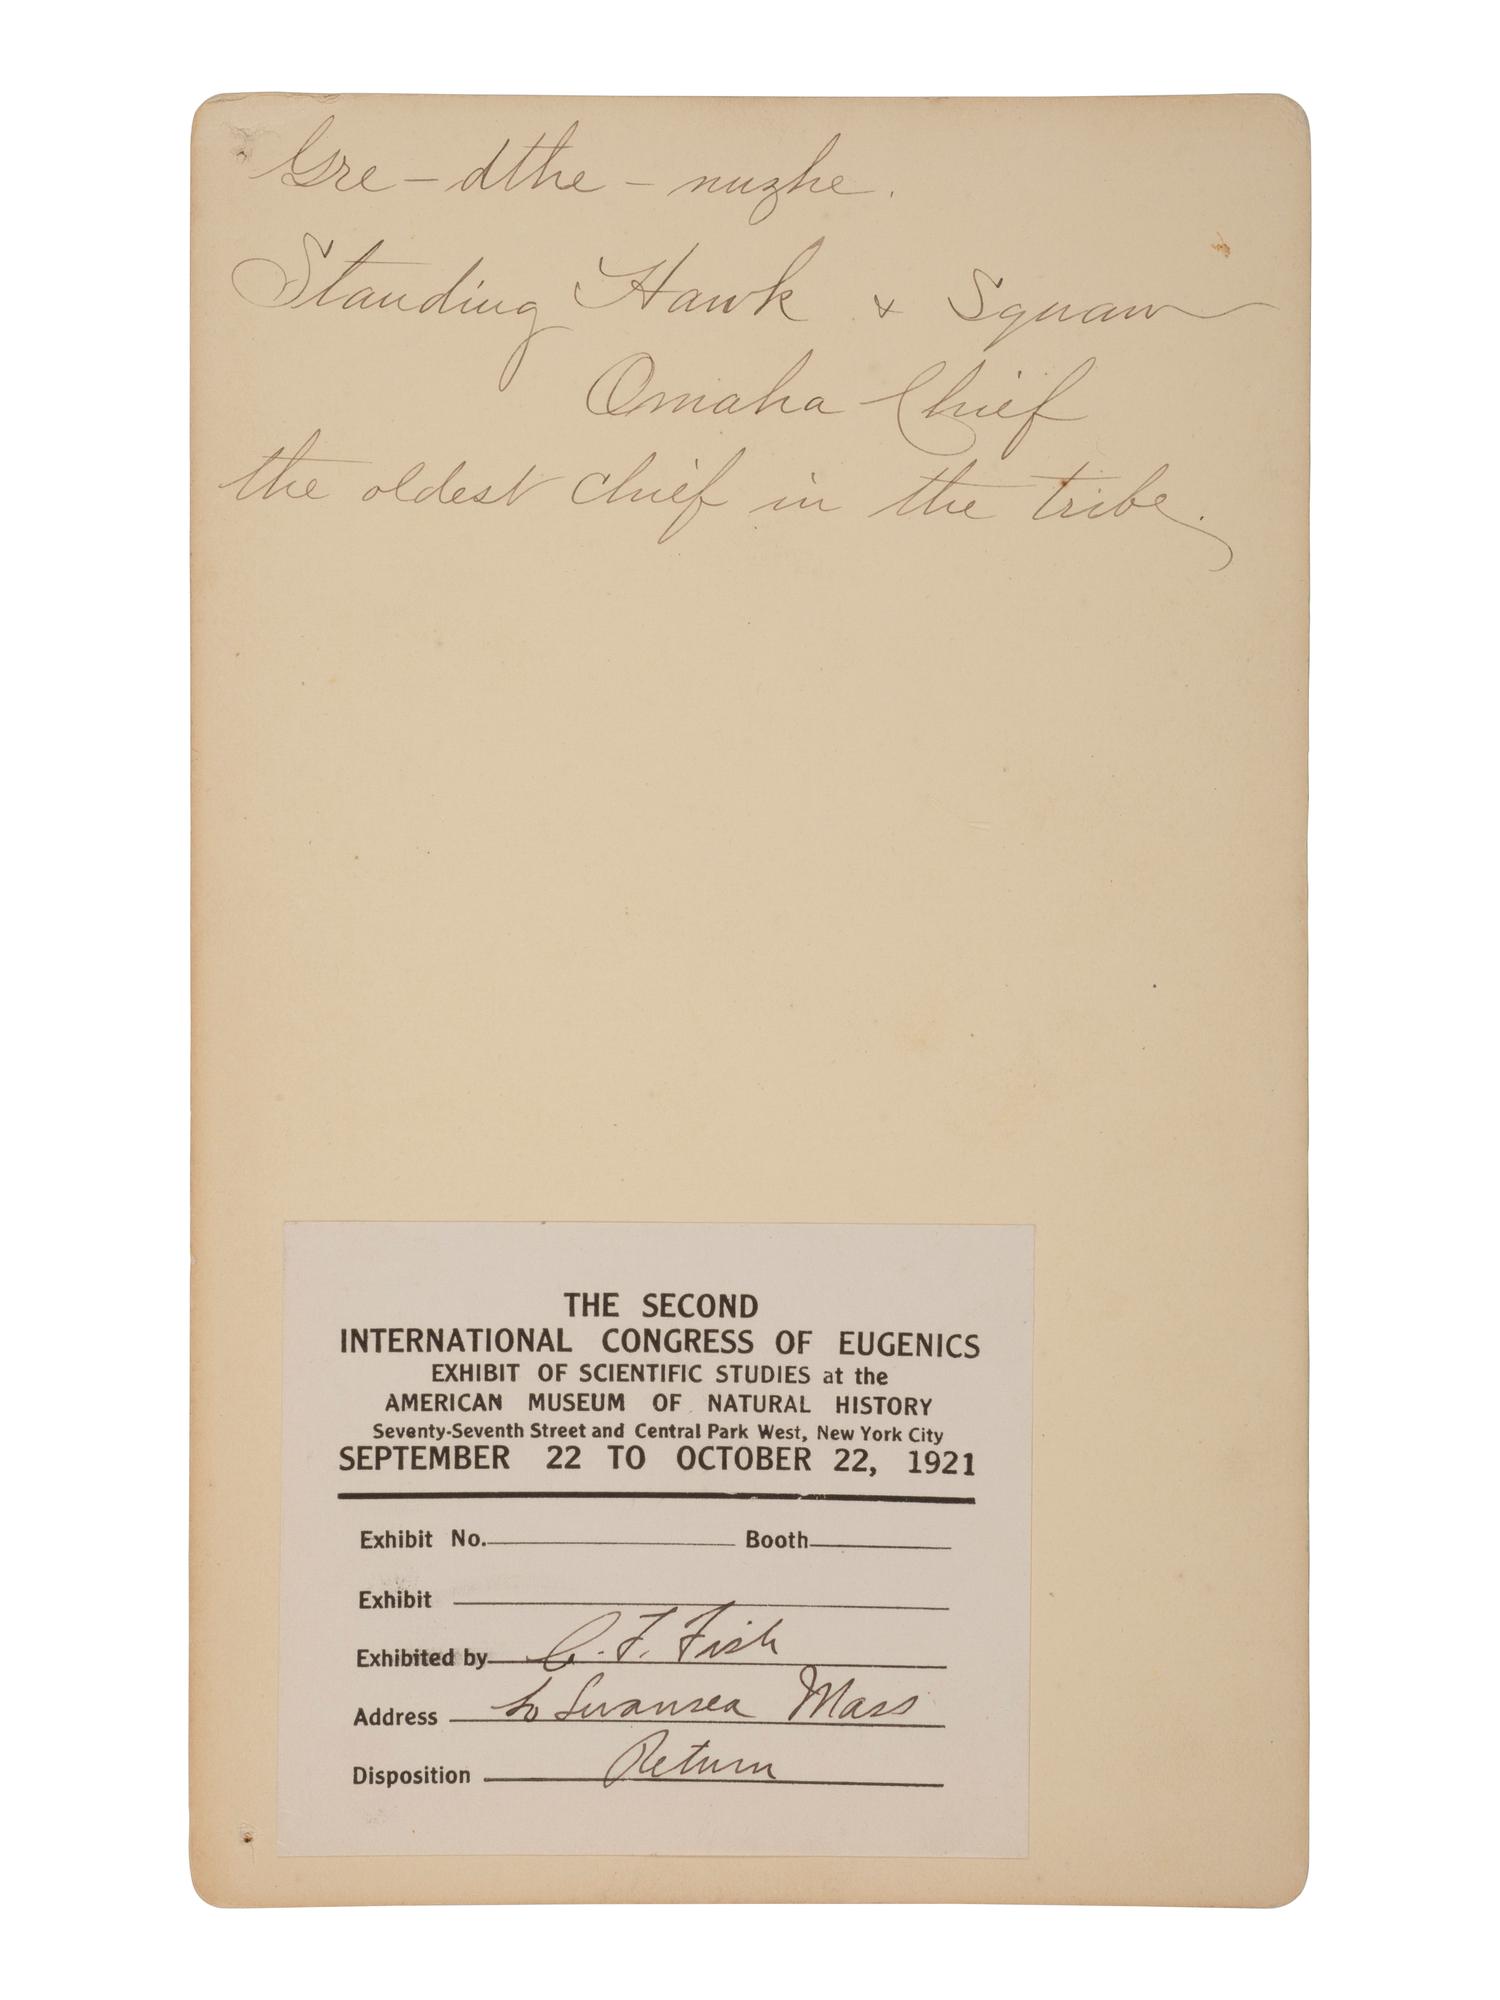 Gre-dthe-nuzhe.
Standing Hawk & Squaw
Omaha Chief
the oldest chief in the tribe.
THE SECOND
INTERNATIONAL CONGRESS OF EUGENICS
EXHIBIT OF SCIENTIFIC STUDIES at the
AMERICAN MUSEUM OF NATURAL HISTORY
Seventy-Seventh Street and Central Park West, New York City
SEPTEMBER 22 TO OCTOBER 22, 1921
Exhibit No. Booth
Exhibit
Exhibited by C. F. Fish
Address So Swansea Mass
Disposition Return